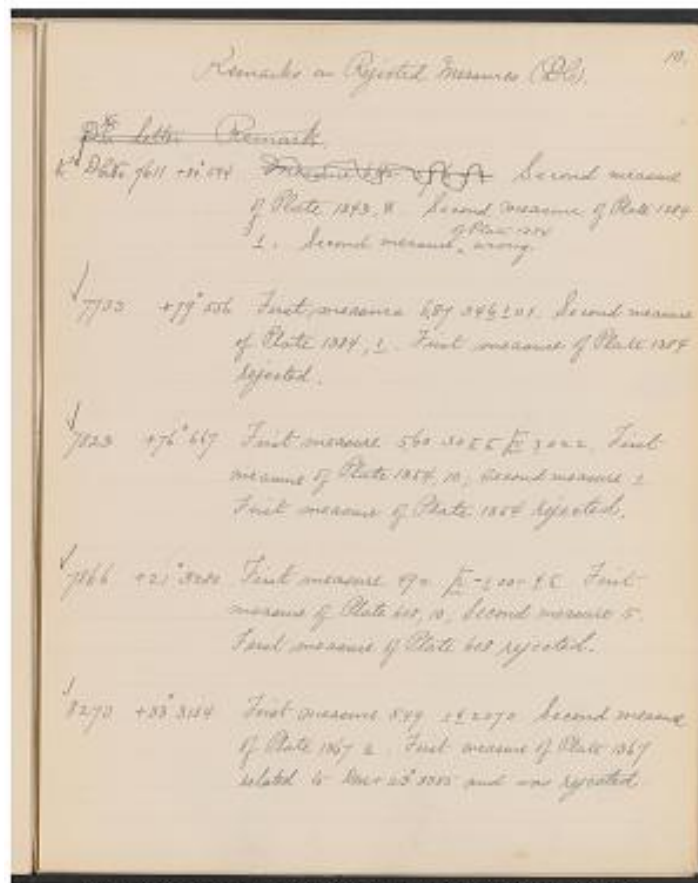 10.
Remarks on Rejected Measures (D.C.).
letter Remark
7611 Second measure
of Plate 1343, 8. Second measure of Plate 1384
of Plate 1384
1. Second measure wrong.
7733 +79° 556 First measure 689 Second measure
of Plate 1384, 1. First measure of Plate 1384
rejected.
7823 +76° 667 First measure 560 First
measure of Plate 1354, 10, second measure 2
First measure of Plate 1354 rejected.
7866 +21° First measure First
measure of Plate 608, 10, Second measure 5.
First measure of Plate 608 rejected.
8273 +33° 3184 First measure 849 Second measure
of Plate 1367 2. First measure of Plate 1367
related to and was rejected